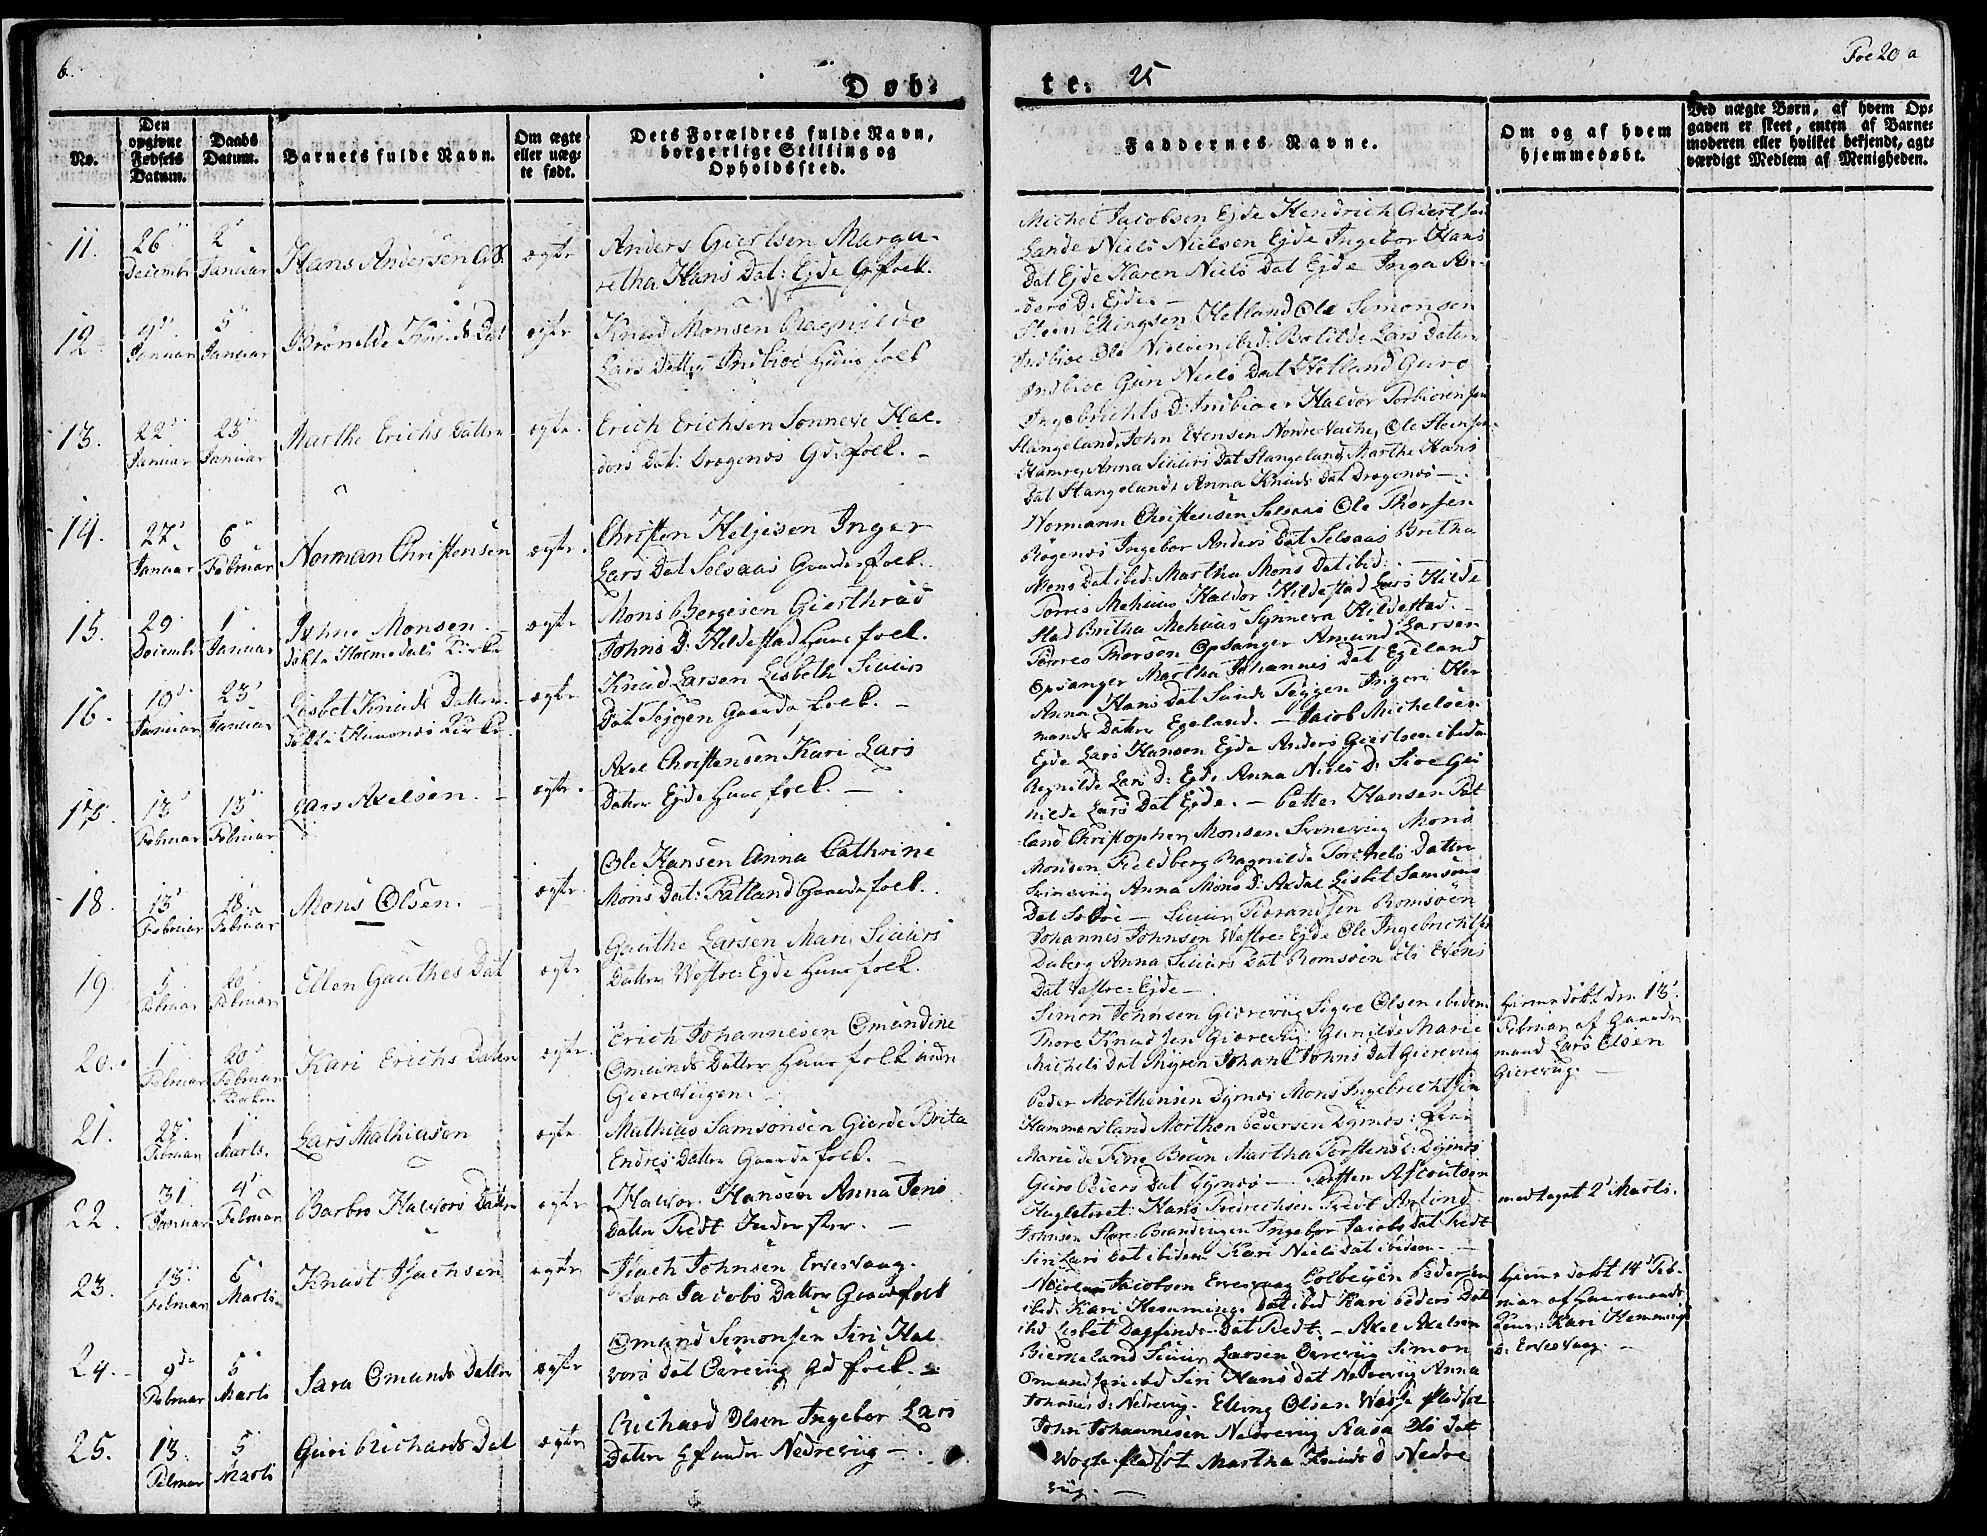 6.
Døb=
te. 25
Foe 20 a
No.
Den opgivne Fødsels Datum.
Daabs Datum.
Barnets fulde Navn.
Om ægte eller uæg= te født.
Dets Forældres fulde Navn, borgerlige Stilling og Opholdssted.
Faddernes Navne.
Om og af hvem hjemmedøbt.
Ved uægte Børn, af hvem Op= gaven er skeet, enten af Barne= moderen eller hvilket bekjendt, agt= værdigt Medlem af Menigheden.
11. 26 Decembr 2 Januar Hans Andersen ægte Anders Giertsen Marga-
retha Hans Dat: Ejde Gfolk.
Michel Jacobsen Ejde Hendrich Giertsen
Lande Niels Nielsen Ejde Ingebor Hans
Dat Ejde Karen Niels Dat Ejde Inga An-
ders D. Ejde. —
12 Januar 5 Januar Brönilde Knuds Dat ægte Knud Monsen Ragnilde
Lars Datter Indbioe Huusfolk
Steen Ellingsen Hetland Ole Simonsen
Indbioe Ole Nielsen ibid: Botilde Lars Datter
Indbioe Guri Niels Dat Hetland Guro
Ingebrichts D: Indbioe
13. 22 Januar 23 Januar Marthe Erichs Datter ægte Erich Erichsen Sonneve Hal-
dors Dat: Drogenøs Gdsfolk. —
Haldor Torbiörensen
Stangeland, John Evensen Nordre Vache, Ole Steensen
Hamre, Anna Siurs Dat Stangeland, Marthe Hans
Dat Stangeland, Anna Knuds Dat Drogenøs —
14. 27 Januar 6 Februar Norman Christensen ægte. Christen Heljesen Inger
Lars Dat Selsaas Gaardsfolk.
Normann Christensen Selsaas Ole Thorsen
Røgenøs Ingebor Anders Dat Selsaas Bretha
Mons Dat ibid: Martha Mons Dat ibid: —
15. 29 Decembr 1 Januar Johne Monsen
døbt i Holmedals Kirke
ægte Mons Bergesen Gierthrud
Johns D: Hildestad Huusfolk.
Torres Mehuus Haldor Hildestad Lars Hilde
stad Britha Mehuus Synneva Hildestad. —
16. 19 Januar 23 Januar Lisbet Knuds Datter
døbt i Huusnøs Kirke
ægte Knud Larsen Lisbeth Siurs
Dat Teigen Gaardsfolk. —
Torres Thorsen Opsanger Amund Larsen
Opsanger Martha Johannes Dat Egeland
Anna Hans Dat Sunds Teygen Ingeri Her
mands Datter Egeland. —
17. 13 Februar 13 Februar Lars Axelsen. — ægte. Axel Christensen Kari Lars
Datter Ejde Huusfolk. —
Jacob Michelsen
Ejde Lars Hansen Ejde Anders Giertsen ibidm
Regnilde Lars D: Ejde Anna Niels D: Sioe Gu
nilde Lars Dat Ejde. —
18. 13 Februar 18 Februar Mons Olsen. ægte. Ole Hansen Anna Cathrine
Mons Dat: Fatland Gaardsfolk.
Petter Hansen Fat
land Christopher Monsen Svinevig Mons
Monsen Fieldberg Ragnilde Torchels Datter
Svinevig Anna Mons D: Axdal Lisbet Samsons
Dat Solvoe —
19. 5 Februar 20 Februar Ellen Gauthes Dat ægte Gauthe Larsen Mari Siurs
Datter Westre: Ejde Huusfolk.
Siur Tiorandsen Romsöen
Johannes Johnsen Westre: Ejde Ole Ingebrichtsen
Duberg Anna Siurs Dat Romsöen Els Evens
Dat Vestre: Ejde —
20. 1 Februar 20 Februar Kirken Kari Erichs Datter ægte. Erich Johannesen Omundine
Omunds Datter Huusfolk under
Gierevigen.
Simon Johnsen Gierevig Sigve Olsen ibidem
Thore Knudsen Gierevig: Gunilde Marie
Michels Dat Myren Johan Johns Dat Gierevig
hjemedøbt den 13
Februar af Gaard-
mand Lars Olsen
Gierevig. —
21. 27 Februar 1 Marts. Lars Mathiasen ægte Mathias Samsonsen Gierde Brita
Endres Datter Gaardsfolk. —
Peder Morthensen Dymøs Mons Ingebrechtsen
Hammersland Morthen Pedersen Dymøs:
Marie de Fine Beün Martha Torstens: Dymøs
Guro Peders Dat Dymøs —
22. 31 Januar 4 Februar Barbro Halvors Datter ægte Halvor Hansen Anna Jens
Datter Tredt Inderster. —
Torsten Asloutsen
Hugletvet: Hans Fredrichsen Tredt Anfind
Johnsen Store: Brandvigen Ingebor Jacobs Dat Tredt
Siri Lars Dat ibidem Kari Niels Dat ibidem —
medtaget 2 Marts.
23. 13 Februar 6 Marts Knudt Isachsen ægte Isach Johnsen Ervesvaag.
Sara Jacobs Datter Gaardsfolk
Nicolaus Jacobsen Ervesvaag Colbeyen Pedersen
ibid. Kari Hemmings Dat ibid Kari Peders Dat
ibid Lisbet Dagfinds Dat Tredt. —
hjemedøbt 14 Feb-
ruar af Gaarmands
Kone: Kari Hemmings
D: Ervesvaag. —
24. 9de Februar 5 Marts Sara Omunds Datter ægte Omund Simonsen Siri Hal-
vors Dat Oarevig Gdfolk. —
Axel Axelsen
Bierkeland Siur Larsen Oarevig Simon
Omundsen ibid Siri Hans Dat Nedrevig Anna
Johnes D: Nedrevig.
25. 13 Februar 5 Marts Guri Richards Dat ægte Richard Olsen Ingebor Lars
Datter Hfunder Nedrevig —
Elling Olsen Wasse
John Johannesen Nedrevig Rasa Els Dat
Martha Knuds D Nedre
vig. —